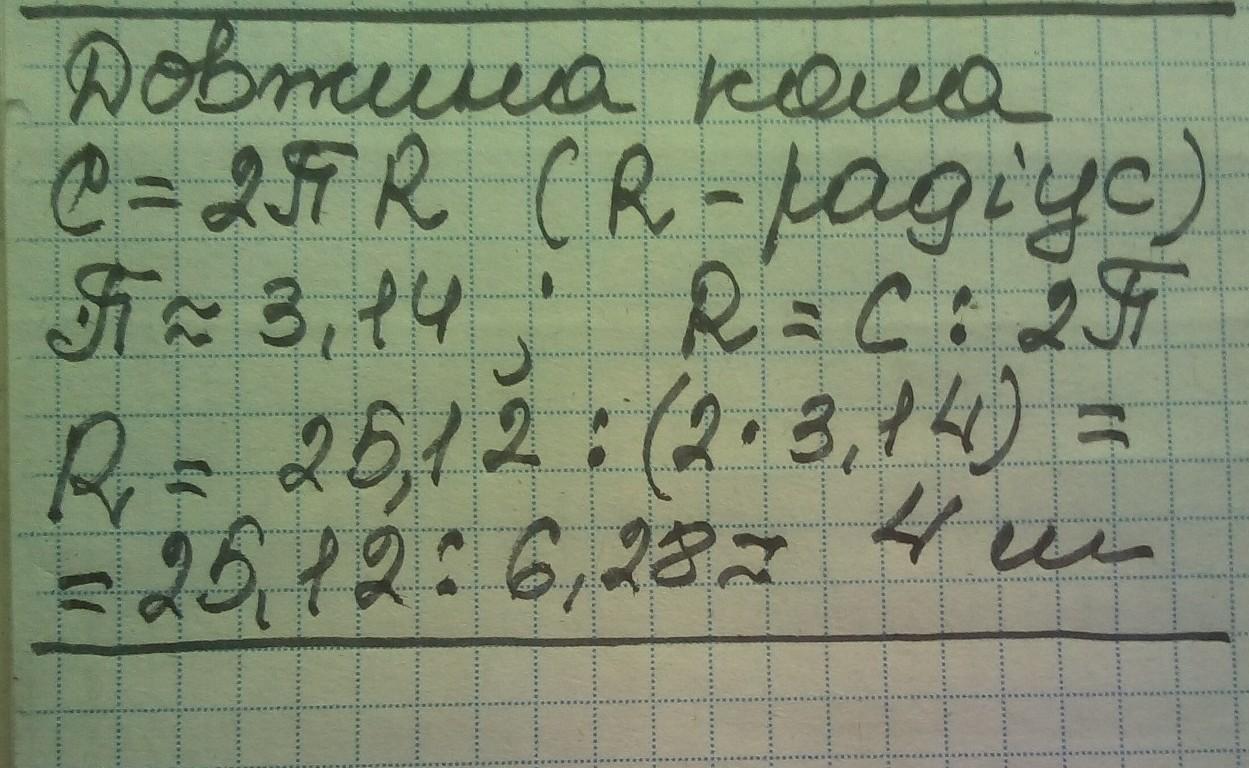 Довжина кола
C = 2π R (R - радіус)
π ≈ 3,14 ; R = C : 2π
R = 25,12 : (2 · 3,14) =
= 25,12 : 6,28 ≈ 4 м